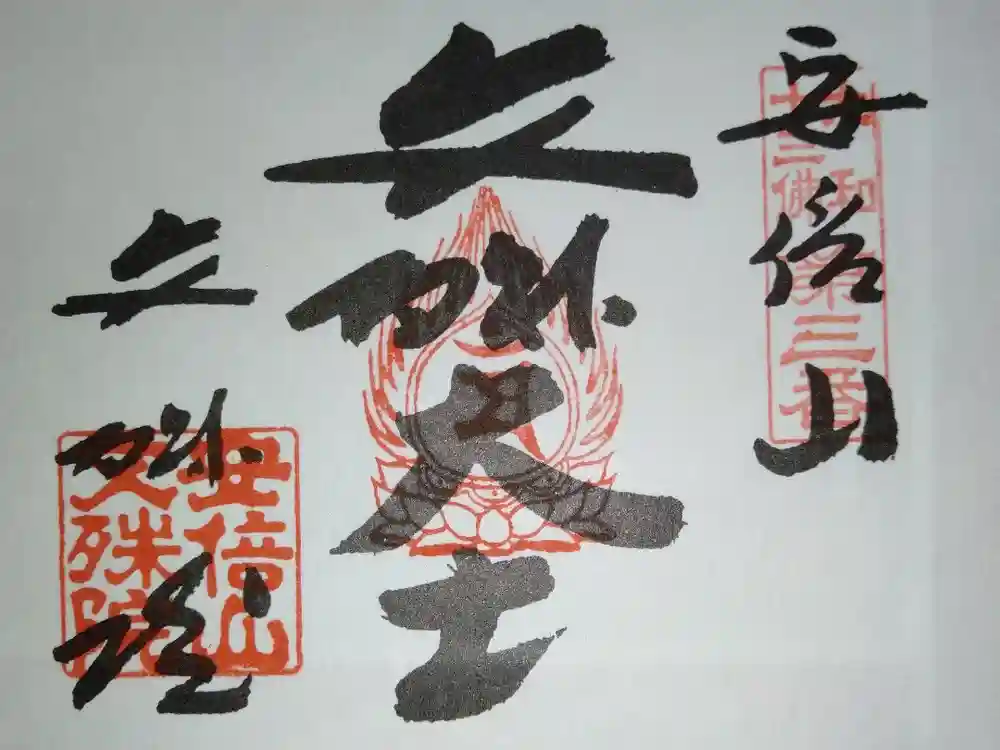 安倍山
大和
十三佛
第三番
文殊大士
文殊院
安倍山
文殊院